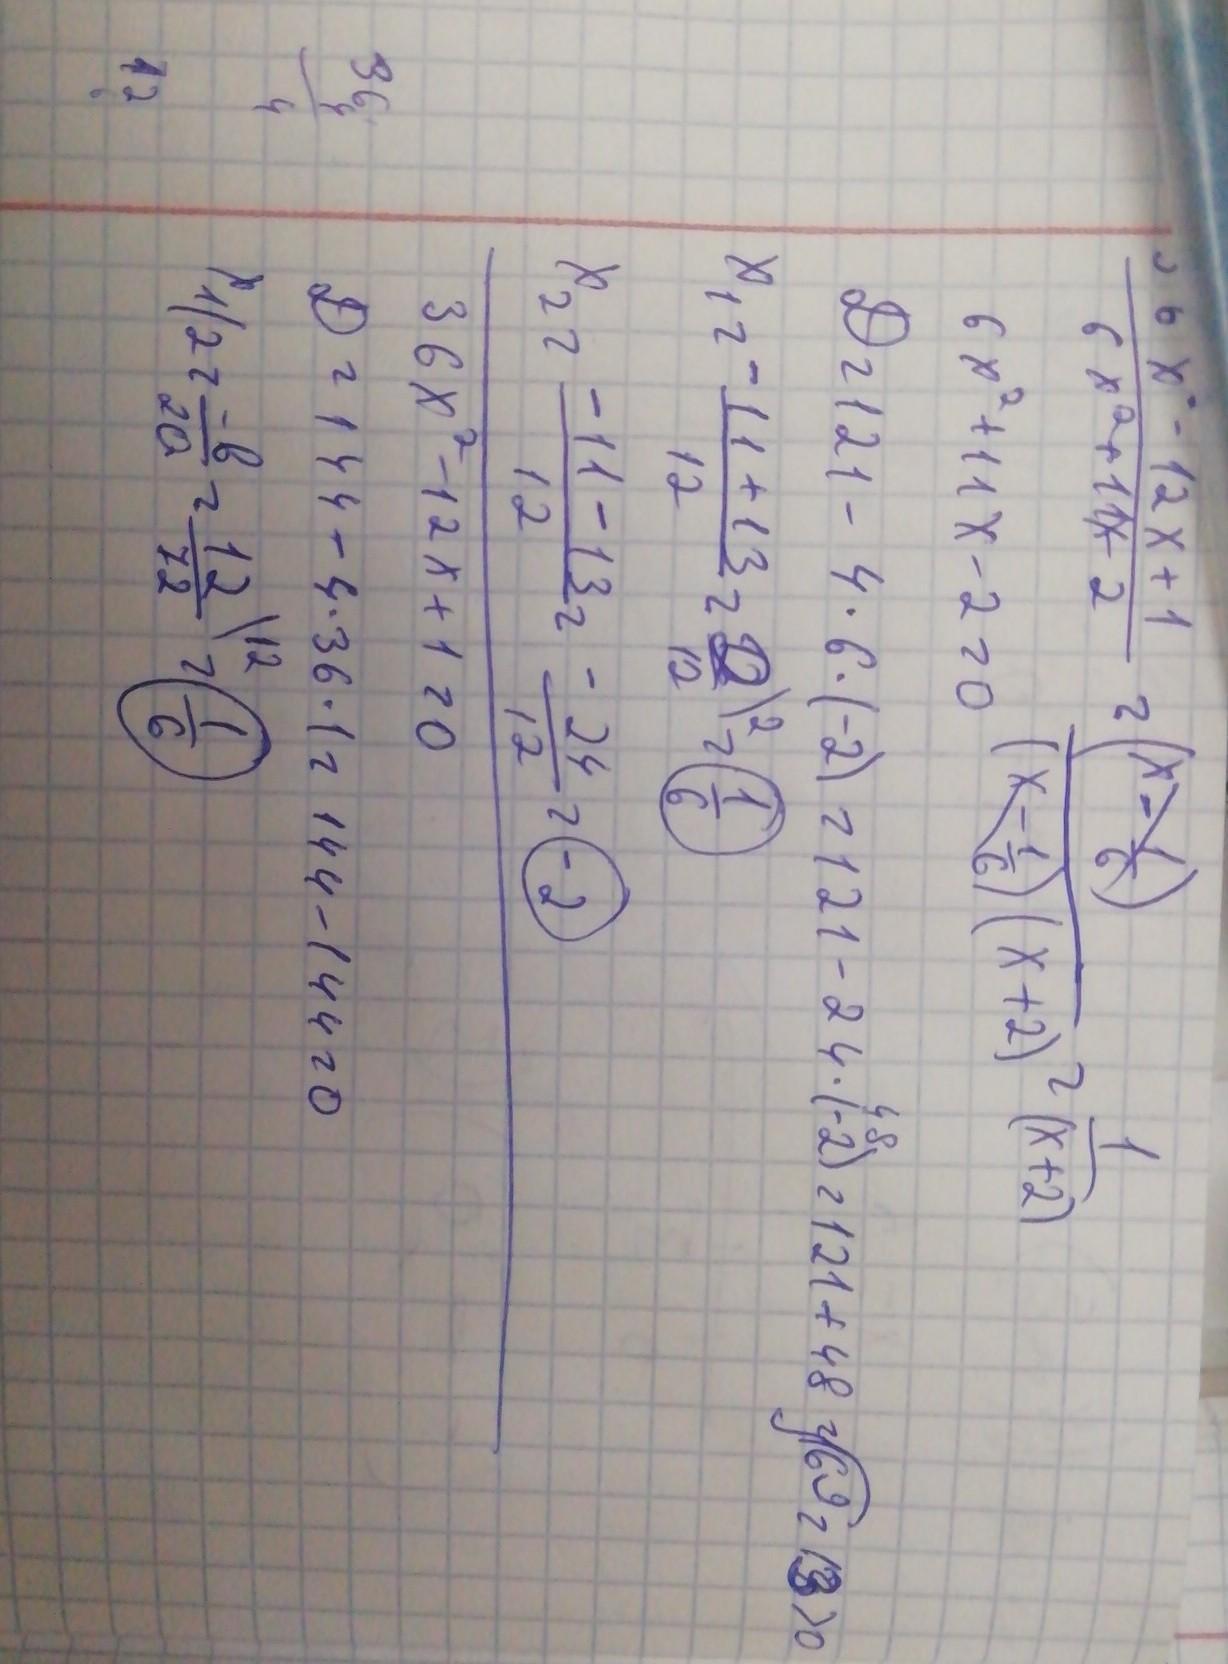 36x² - 12x + 1 / 6x² + 11x - 2 = (x - 1/6) / (x - 1/6)(x + 2) = 1 / (x + 2)
6x² + 11x - 2 = 0
D = 121 - 4 · 6 · (-2) = 121 - 24 · (-2) = 121 + 48 = √169 = 13 > 0
48
x1 = -11 + 13 / 12 = 2 / 12 \2 = 1/6
x2 = -11 - 13 / 12 = -24 / 12 = -2
36x² - 12x + 1 = 0
D = 144 - 4 · 36 · 1 = 144 - 144 = 0
x1/2 = -b / 2a = 12 / 72 \12 = 1/6
36
4
4
12